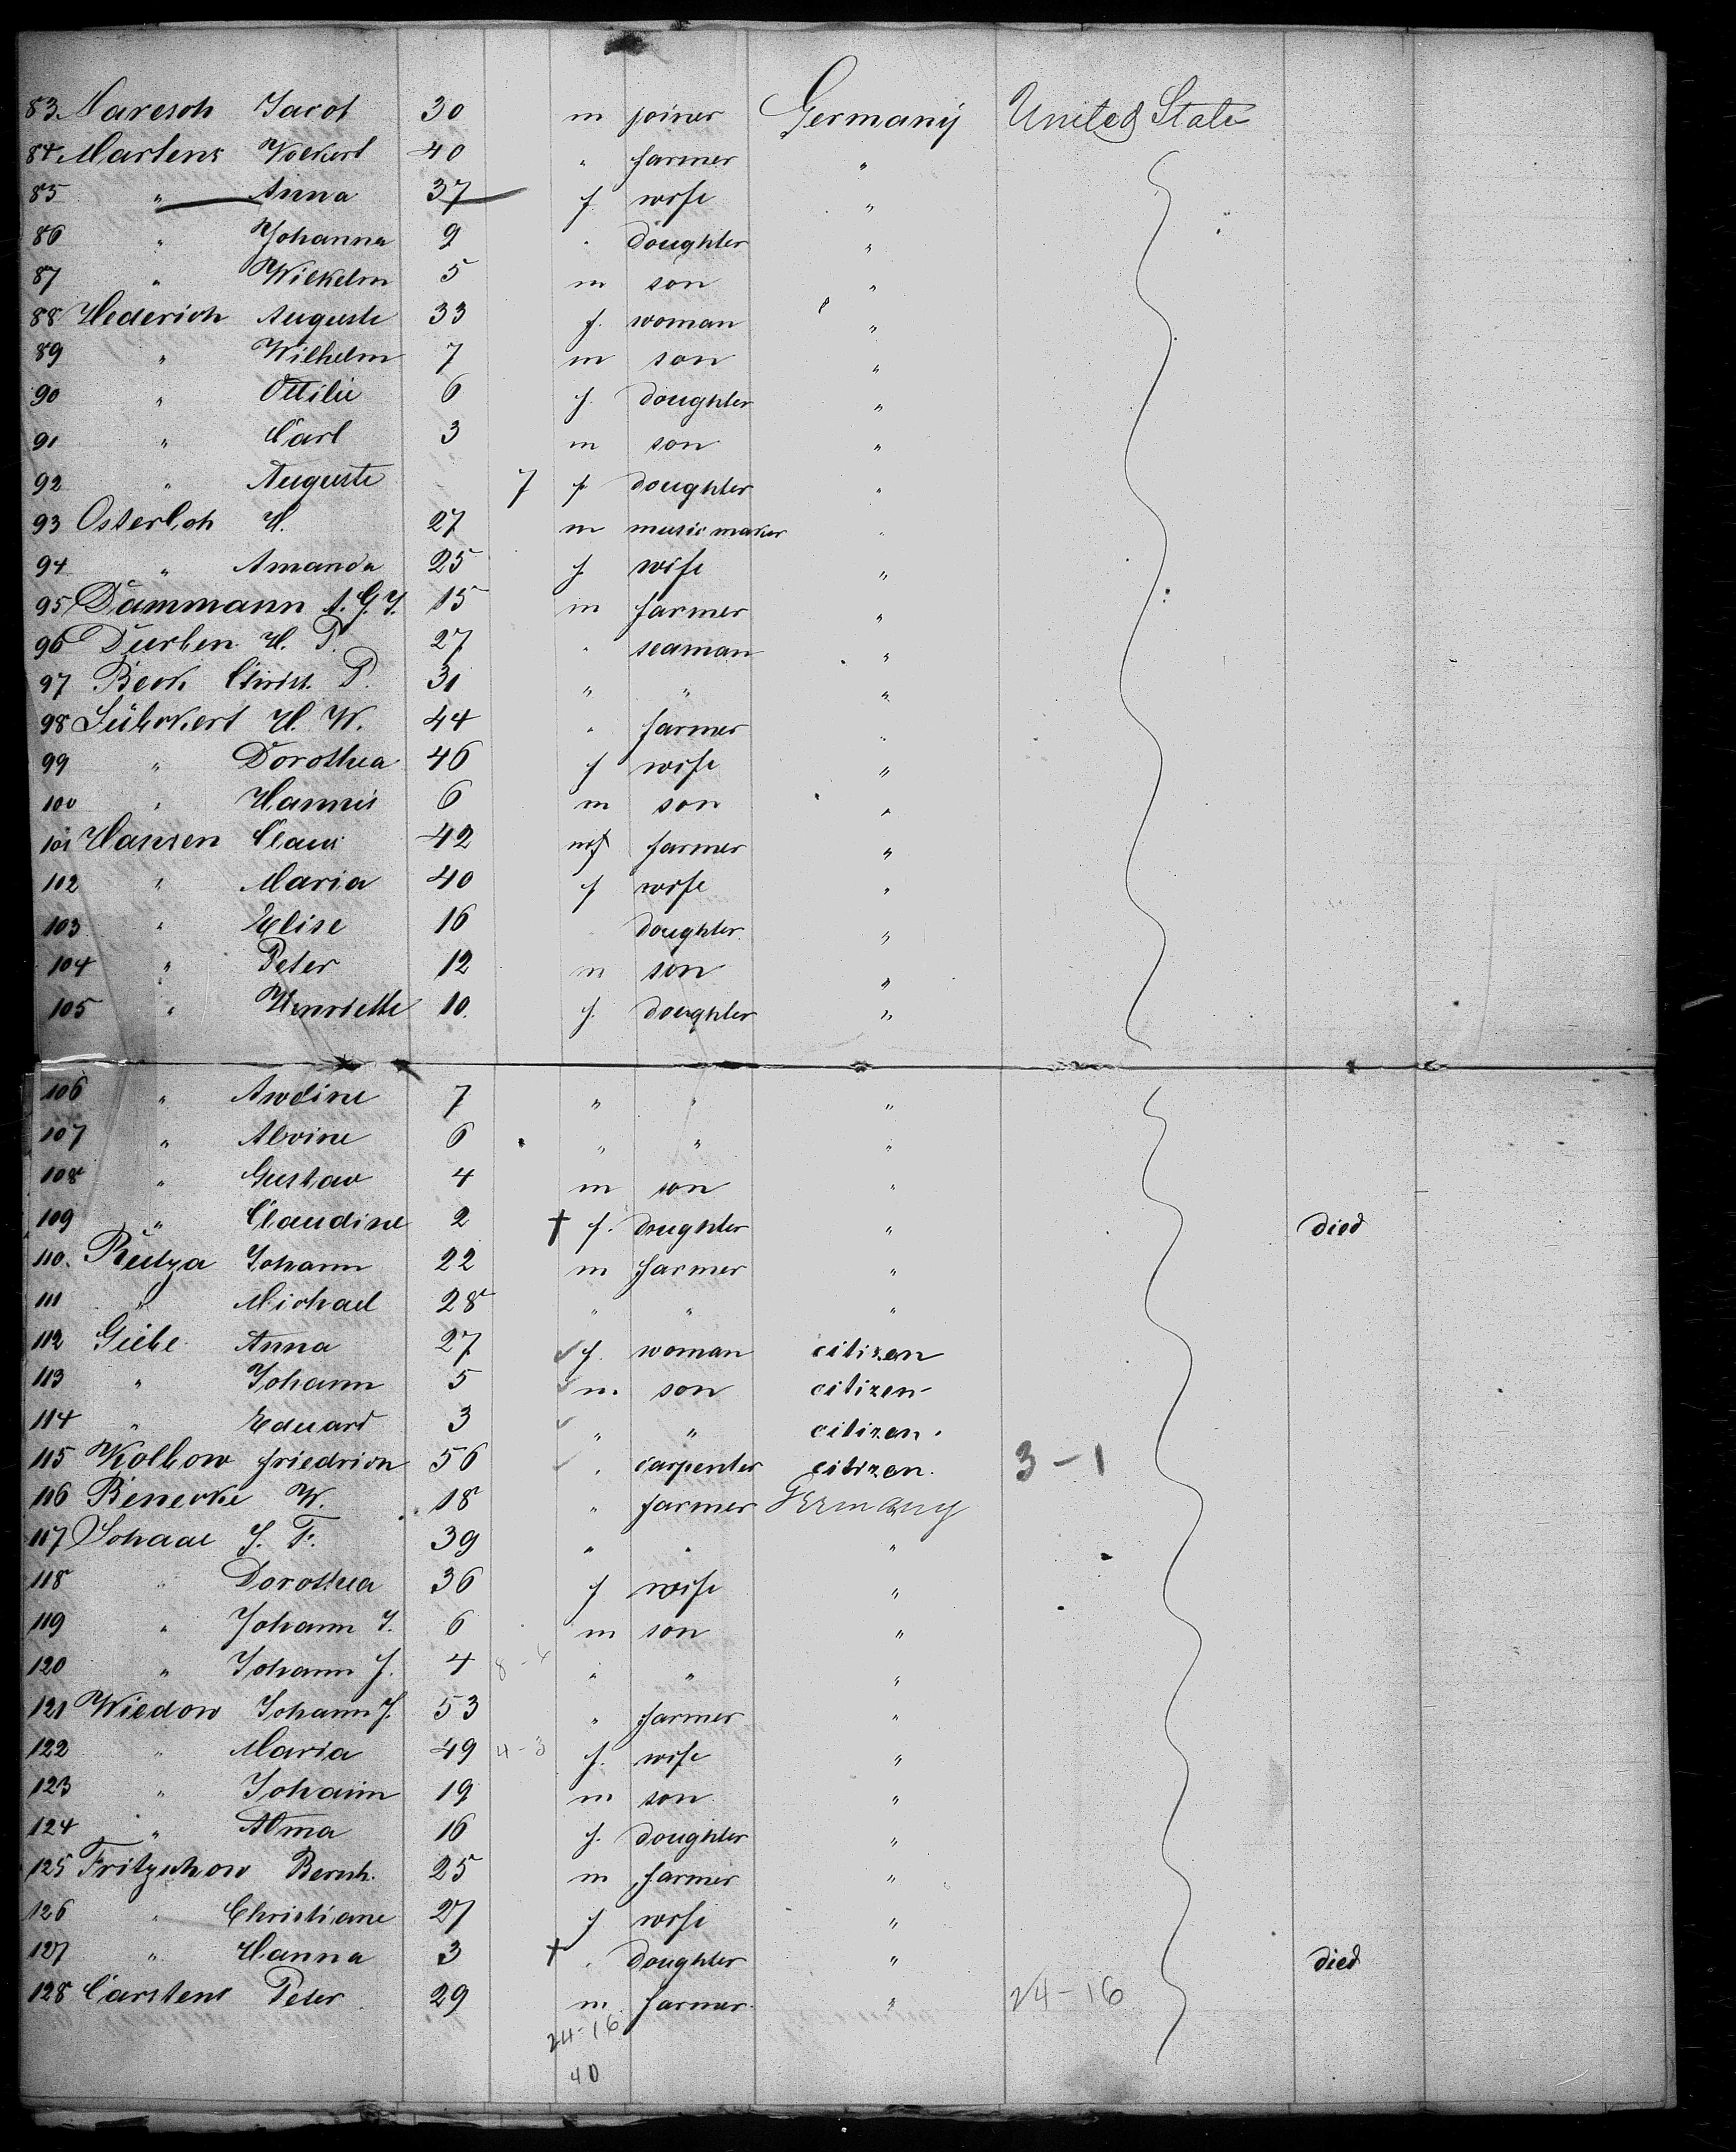 83 Naresch Jacob 30 m joiner Germany United State
84 Martens Volkert 40 " farmer "
85 " Anna 37 f wife "
86 " Johanna 9 " doughter "
87 " Wilhelm 5 m son "
88 Hederich Auguste 33 f. woman "
89 " Wilhelm 7 m son "
90 " Ottilie 6 f. doughter "
91 " Carl 3 m son "
92 " Auguste 7 f doughter "
93 Osterloh H. 27 m music maker "
94 " Amanda 25 f wife "
95 Dammann A. G. J. 15 m farmer "
96 Durben H. P. 27 " seaman "
97 Beck Christ. P. 31 " " "
98 Lübckert H. W. 44 " farmer "
99 " Dorothea 46 f wife "
100 " Hannis 6 m son "
101 Hansen Claus 42 m farmer "
102 " Maria 40 f wife "
103 " Elise 16 doughter "
104 " Peter 12 m son "
105 " Henriette 10. f. doughter "
106 " 7 " " "
107 " Alvine 6 " " "
108 " Gustav 4 m son "
109 " Claudine 2 † f. doughter " died
110. Rudza Johann 22 m farmer "
111 " Michael 28 " " "
112 Giebe Anna 27 ✓ f. woman citizen
113 " Johann 5 ✓ m. son citizen
114 " Eduard 3 ✓ " " citizen.
115 Kolbow friedrich 56 ✓ " carpenter citizen. 3-1
116 Benecke W. 18 " farmer Germany
117 Schaal J. F. 39 " " "
118 " Dorothea 36 f wife "
119 " Johann J. 6 m son "
120 " Johann J. 4 8-4 " " "
121 Wiedow Johann J. 53 " farmer "
122 " Maria 49 4-3 f. wife "
123 " Johann 19 m son "
124 " Alma 16 f. doughter "
125 Fritzschow Bernh. 25 m farmer "
126 " Christiane 27 f wife "
127 " Hanna 3 † " doughter " died
128 Carstens Peter 29 m. farmer " 24-16
24-16
40